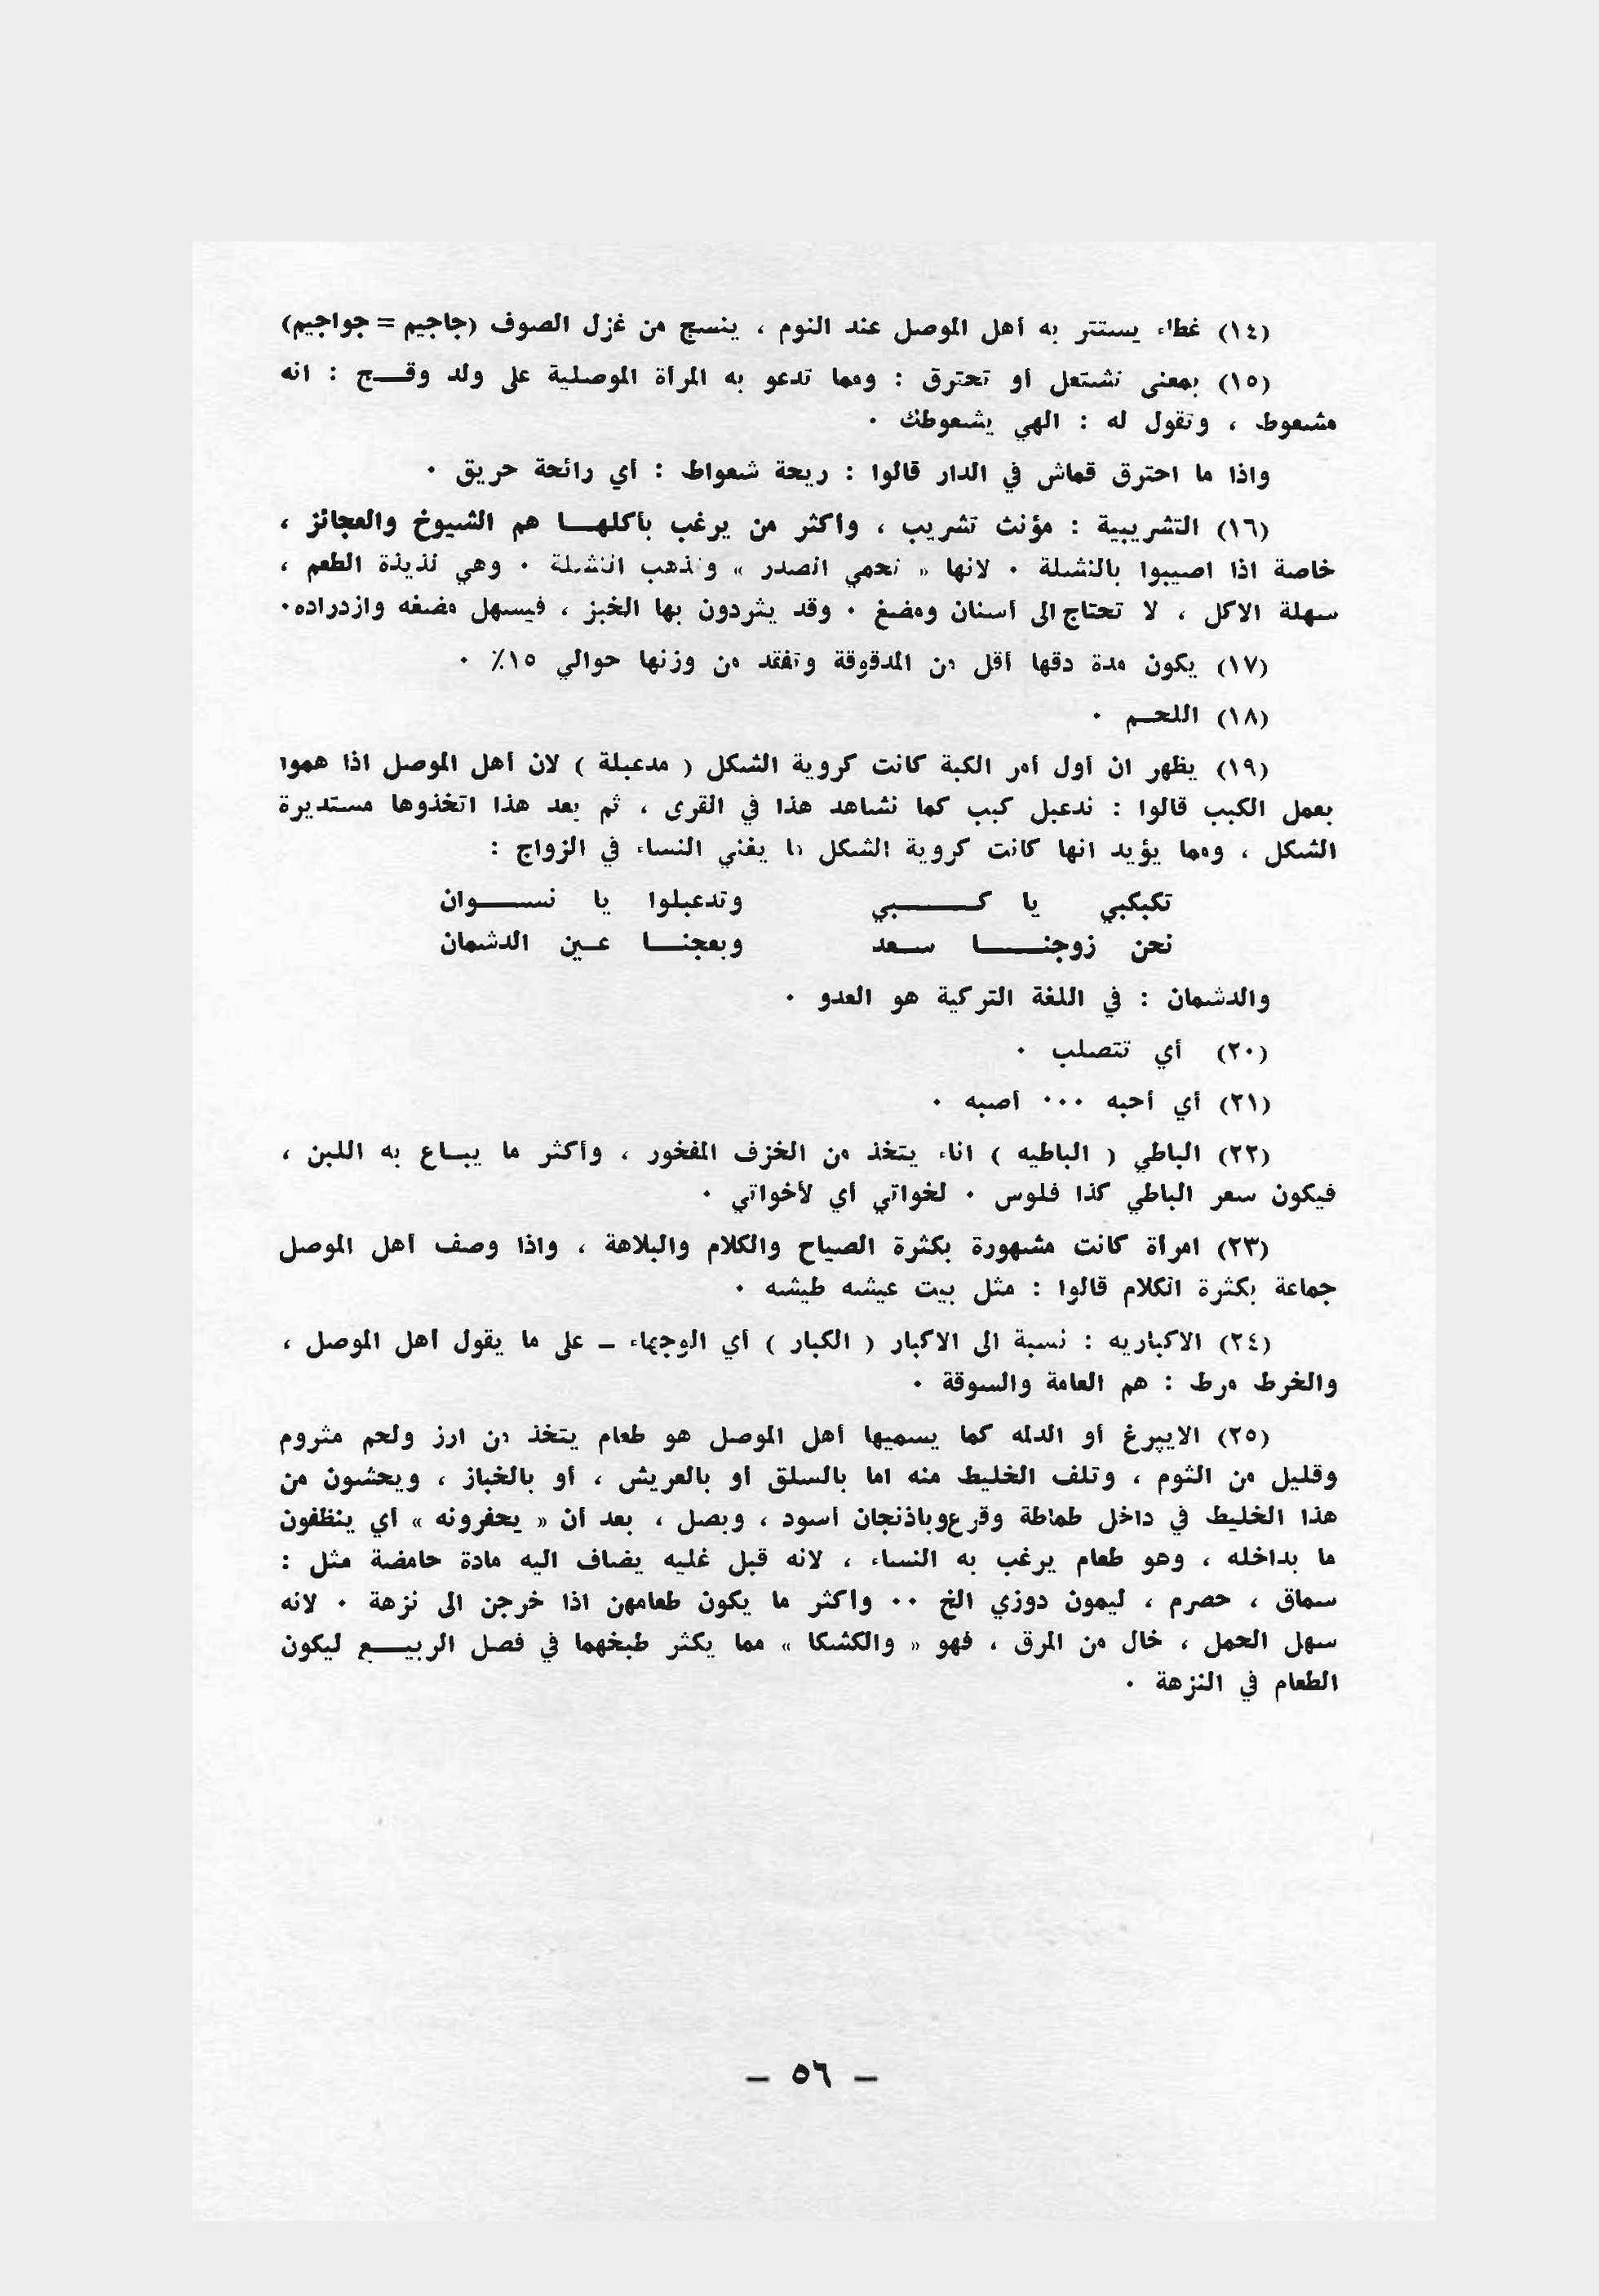 (١٤) غطاء يستتر به أهل الموصل عند النوم ، ينسج من غزل الصوف (جاجيم = جواجيم)
(١٥) بمعنى تشتعل أو تحترق : ومما تدعو به المرأة الموصلية على ولد وقـــح : انه
مشعوط ، وتقول له : الهي يشعوطك ٠
واذا ما احترق قماش في الدار قالوا : ريحة شعواط : أي رائحة حريق ٠
(١٦) التشريبية : مؤنث تشريب ، وأكثر من يرغب بأكلهـــا هم الشيوخ والعجائز ،
خاصة اذا اصيبوا بالنشلة ٠ لانها « تحمي الصدر » وتذهب النشلة ٠ وهي لذيذة الطعم ،
سهلة الاكل ، لا تحتاج الى أسنان ومضغ ٠ وقد يثردون بها الخبز ، فيسهل مضغه وازدراده٠
(١٧) يكون مدة دقها أقل من المدقوقة وتفقد من وزنها حوالي ١٥٪ ٠
(١٨) اللحـم ٠
(١٩) يظهر ان أول أمر الكبة كانت كروية الشكل ( مدعبلة ) لان أهل الموصل اذا هموا
بعمل الكبب قالوا : ندعبل كبب كما نشاهد هذا في القرى ، ثم بعد هذا اتخذوها مستديرة
الشكل ، ومما يؤيد انها كانت كروية الشكل ما يغني النساء في الزواج :
تكبكبي يا كـــــبي وتدعبلوا يا نســـــوان
نحن زوجنـــــا ســعد وبعجنـــا عــين الدشمان
والدشمان : في اللغة التركية هو العدو ٠
(٢٠) أي تتصلب ٠
(٢١) أي أحبه ٠٠٠ أصبه ٠
(٢٢) الباطي ( الباطيه ) اناء يتخذ من الخزف المفخور ، وأكثر ما يبــاع به اللبن ،
فيكون سعر الباطي كذا فلوس ٠ لخواتي أي لأخواتي ٠
(٢٣) امرأة كانت مشهورة بكثرة الصياح والكلام والبلاهة ، واذا وصف أهل الموصل
جماعة بكثرة الكلام قالوا : مثل بيت عيشه طيشه ٠
(٢٤) الاكباريه : نسبة الى الاكبار ( الكبار ) أي الوجهاء ــ على ما يقول أهل الموصل ،
والخرط مرط : هم العامة والسوقة ٠
(٢٥) الايپرغ أو الدلمه كما يسميها أهل الموصل هو طعام يتخذ من ارز ولحم مثروم
وقليل من الثوم ، وتلف الخليط منه اما بالسلق أو بالعريش ، أو بالخباز ، ويحشون من
هذا الخليط في داخل طماطة وقرع وباذنجان أسود ، وبصل ، بعد أن « يحفرونه » أي ينظفون
ما بداخله ، وهو طعام يرغب به النساء ، لانه قبل غليه يضاف اليه مادة حامضة مثل :
سماق ، حصرم ، ليمون دوزي الخ ٠٠ وأكثر ما يكون طعامهن اذا خرجن الى نزهة ٠ لانه
سهل الحمل ، خال من المرق ، فهو « والكشكا » مما يكثر طبخهما في فصل الربيـــع ليكون
الطعام في النزهة ٠
ــ ٥٦ ــ